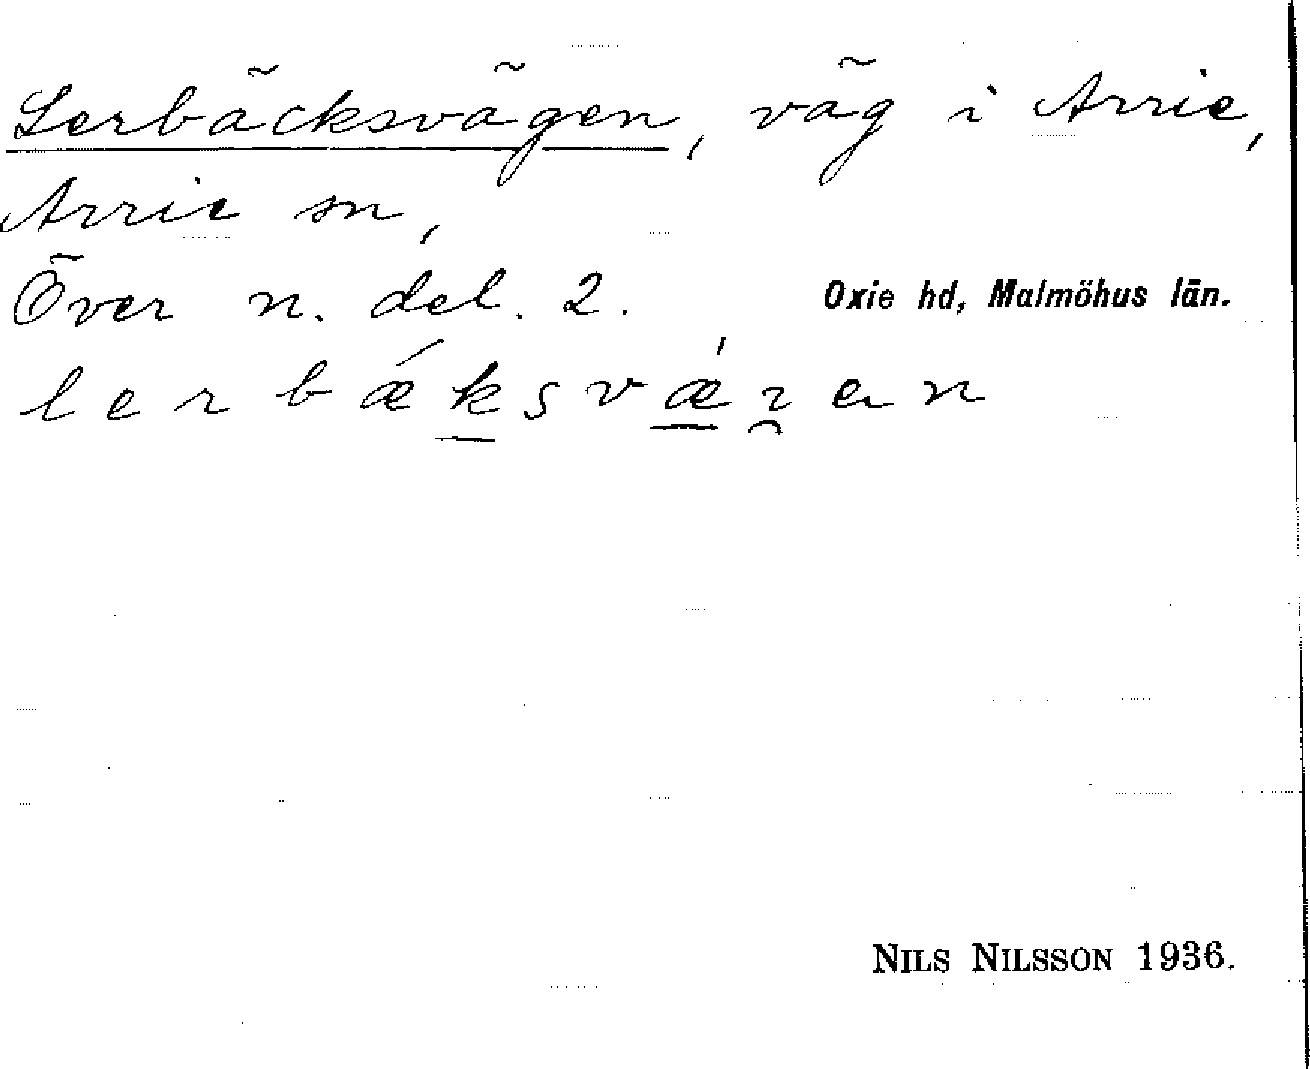 Lerbäcksvägen, väg i Arrie,
Arrie sn,
Över n. del. 2. Oxie hd, Malmöhus län.
lerbǽksvǽɿan
NILS NILSSON 1936.